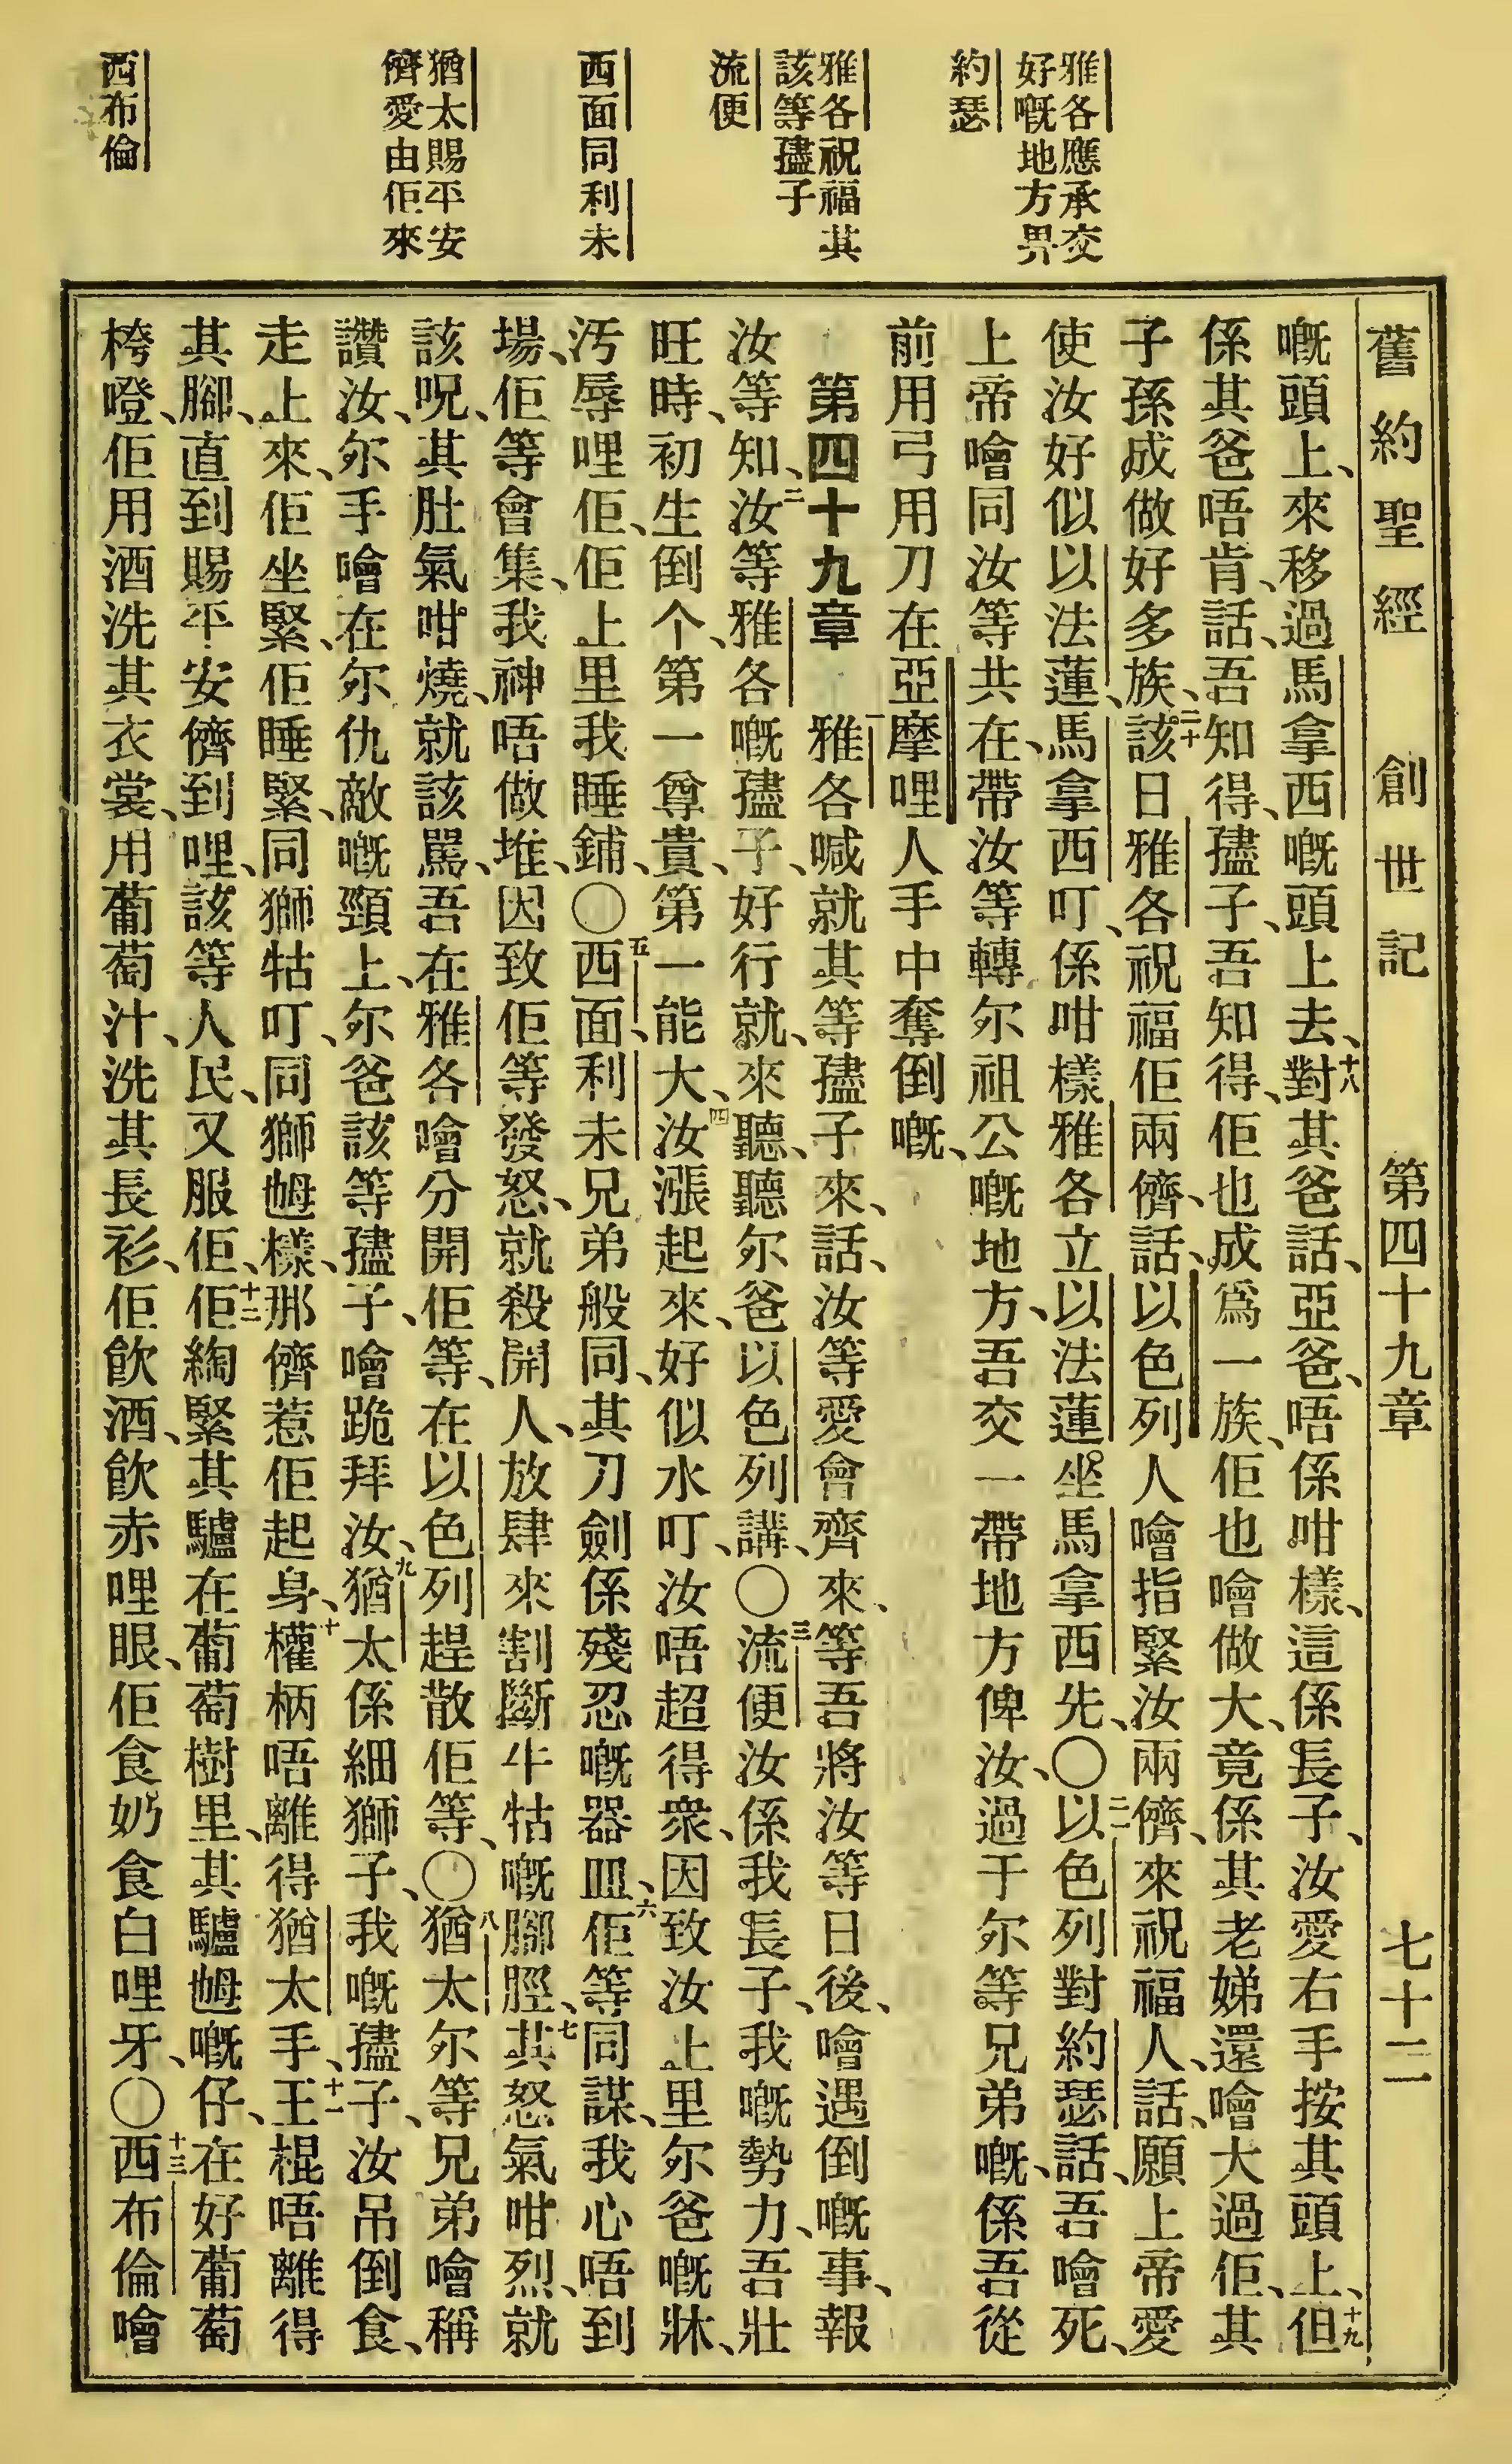 雅各應承交
好嘅地方畀
約瑟
雅各祝福其
該等孻子
流便
西面同利未
猶太賜平安
儕愛由佢來
西布倫
舊約聖經 創世記 第四十九章 七十二
嘅頭上、來移過馬拿西嘅頭上去、十八對其爸話、亞爸、唔係咁樣、這係長子、汝愛右手按其頭上、十九但
係其爸唔肯、話、吾知得、孻子、吾知得、佢也成爲一族、佢也噲做大、竟係其老娣還噲大過佢、其
子孫成做好多族、二十該日雅各祝福佢兩儕、話、以色列人噲指緊汝兩儕、來祝福人、話、願上帝愛
使汝好似以法蓮、馬拿西叮、係咁樣雅各立以法蓮坐馬拿西先、〇二一以色列對約瑟話、吾噲死、
上帝噲同汝等共在、帶汝等轉尔祖公嘅地方、二二吾交一帶地方俾汝、過于尔等兄弟嘅、係吾從
前用弓用刀在亞摩哩人手中奪倒嘅、
第四十九章 一雅各喊就其等孻子來、話、汝等愛會齊來、等吾將汝等日後、噲遇倒嘅事、報
汝等知、二汝等雅各嘅孻子、好行就、來聽、聽尔爸以色列講、〇三流便汝係我長子、我嘅勢力、吾壯
旺時、初生倒个、第一尊貴、第一能大、四汝漲起來、好似水叮、汝唔超得衆、因致汝上里尔爸嘅牀、
汚辱哩佢、佢上里我睡鋪、〇五西面、利未兄弟般同、其刀劍係殘忍嘅器皿、六佢等同謀、我心唔到
場、佢等會集、我神唔做堆、因致佢等發怒、就殺開人、放肆來割斷牛牯嘅腳脛、七其怒氣咁烈、就
該呪、其肚氣咁燒、就該罵、吾在雅各噲分開佢等、在以色列趕散佢等、〇八猶太尔等兄弟噲稱
讚汝、尔手噲在尔仇敵嘅頸上、尔爸該等孻子、噲跪拜汝、九猶太係細獅子、我嘅孻子、汝吊倒食、
走上來、佢坐緊、佢睡緊、同獅牯叮、同獅𡜵樣、那儕惹佢起身、十權柄唔離得猶太手、十一王棍唔離得
其腳、直到賜平安儕到哩、該等人民、又服佢、十二佢綯緊其驢在葡萄樹里、其驢𡜵嘅仔、在好葡萄
桍噔、佢用酒洗其衣裳、用葡萄汁、洗其長衫、佢飲酒、飲赤哩眼、佢食奶食白哩牙、〇十三西布倫噲